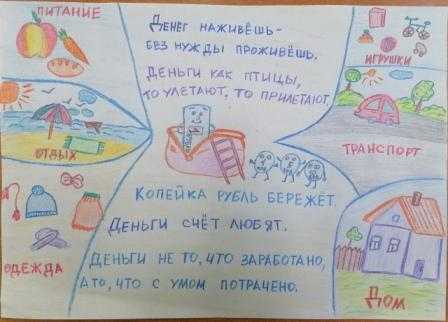 ПИТАНИЕ
ДЕНЕГ НАЖИВЁШЬ -
БЕЗ НУЖДЫ ПРОЖИВЁШЬ.
ДЕНЬГИ КАК ПТИЦЫ,
ТО УЛЕТАЮТ, ТО ПРИЛЕТАЮТ
ИГРУШКИ
ОТДЫХ
ТРАНСПОРТ
КОПЕЙКА РУБЛЬ БЕРЕЖЁТ.
ДЕНЬГИ СЧЁТ ЛЮБЯТ.
ДЕНЬГИ НЕ ТО, ЧТО ЗАРАБОТАНО,
А ТО, ЧТО С УМОМ ПОТРАЧЕНО.
ОДЕЖДА
ДОМ